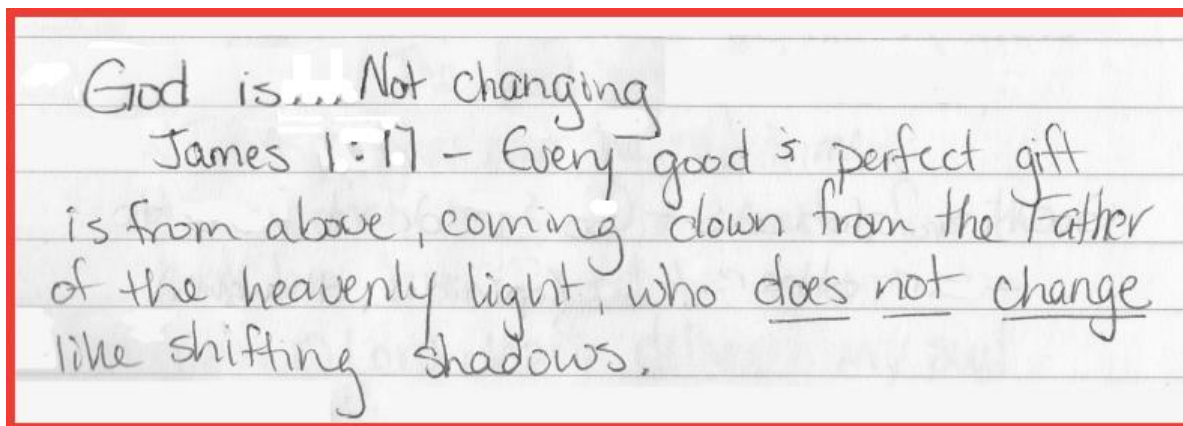 God is... Not changing
James 1:17 - Every good & perfect gift
is from above, coming down from the Father
of the heavenly light, who does not change
like shifting shadows.